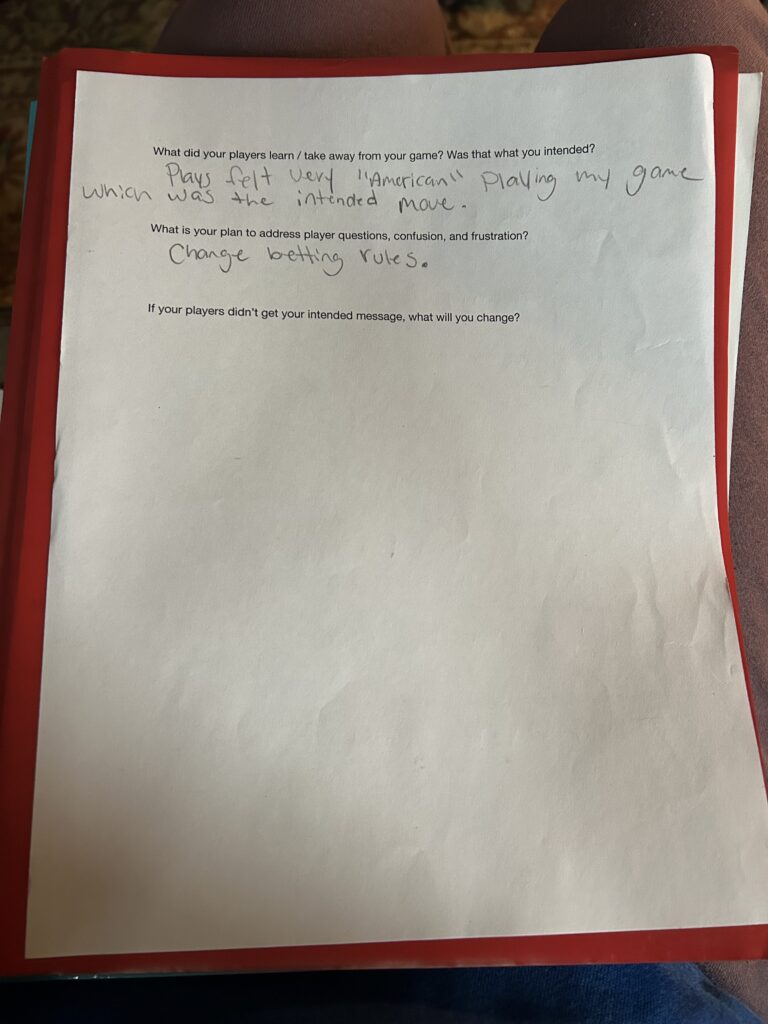 What did your players learn / take away from your game? Was that what you intended?
Plays felt very "American" playing my game
which was the intended move.
What is your plan to address player questions, confusion, and frustration?
Change betting rules.
If your players didn't get your intended message, what will you change?